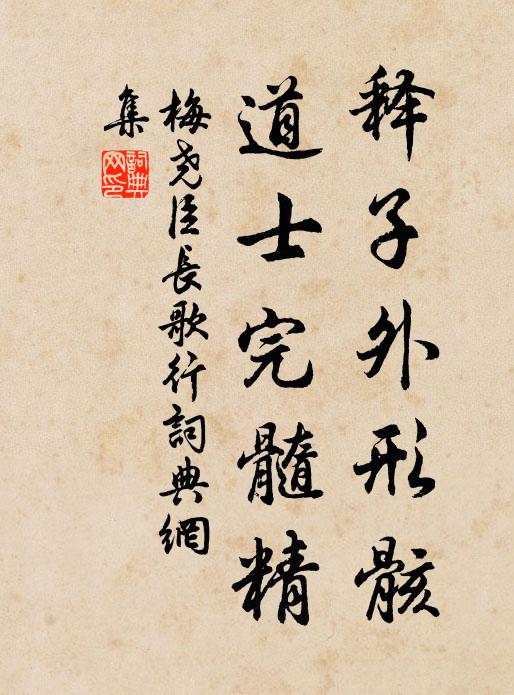 释子外形骸
道士完髓精
梅尧臣長歌行詞典網
集
詞典网印